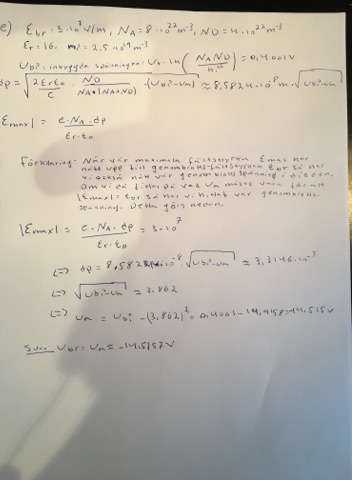 e) Ebr = 3·10⁷ V/m, NA = 8·10²² m⁻³, ND = 4·10²² m⁻³
Er = 16. ni = 2.5·10¹⁹ m⁻³
Ubi = inbyggda spänningen = UT·ln(NA ND / ni²) = 0,4001V
dp = √(2ErEo / e · ND / NA·(NA+ND) · (Ubi-Ua)) ≈ 8,5824·10⁻⁸ m √Ubi-Ua
|Emax| = e·NA·dp / Er·Eo
Förklaring: När vår maximala fältstyrka Emax har
nått upp till genombrotts-fältstyrkan Ebr så har
vi också nått vår genombrottsspänning i dioden.
Om vi då tittar på vad Ua måste vara för att
|Emax| = Ebr så har vi hittat vår genombrotts-
spänning. Detta görs nedan.
|Emax| = e·NA·dp / Er·Eo = 3·10⁷
<=> dp = 8,582 ·10⁻⁸·√Ubi-Ua = 3,3146·10⁻⁷
<=> √Ubi-Ua = 3,862
<=> Ua = Ubi - (3,862)² = 0,4001 - 14,9158 = -14,515V
Svar: Ubr = Ua = -14,5157 V